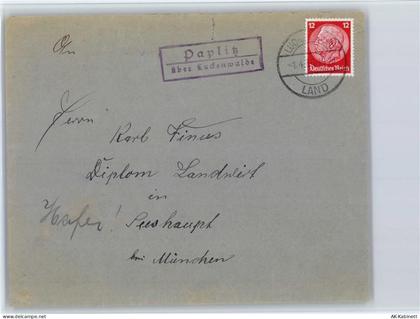 An
Paplitz
über Luckenwalde
12 12
Deutsches Reich
LAND
Herrn
Karl
Diplom Landwirt
in
Seeshaupt
bei München
AK-Kabinett